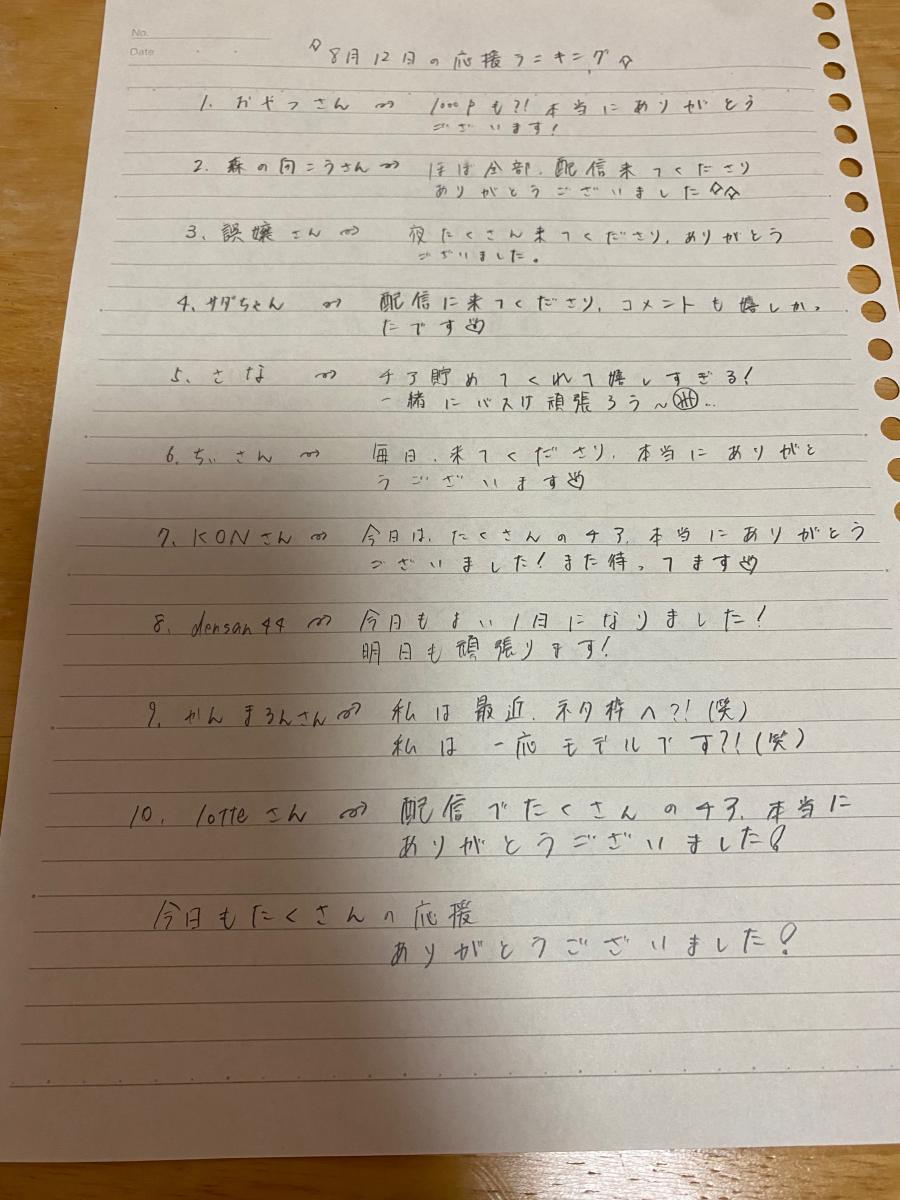 No.
Date
☆8月12日の応援ランキング☆
1. おやつさん⇝ 1000Pも?!本当にありがとう
ございます!
2. 森の向こうさん⇝ ほぼ全部、配信来てくださり
ありがとうございました☆☆
3、誤嬢さん⇝ 夜たくさん来てくださり、ありがとう
ございました。
4、サダちゃん⇝ 配信に来てくださり、コメントも嬉しかっ
たです♡
5、さな⇝ チア貯めてくれて嬉しすぎる!
一緒にバスけ頑張ろう〜...
6、ちぃさん⇝ 毎日、来てくださり、本当にありがと
うございます♡
7、KONさん⇝ 今日は、たくさんのチア、本当にありがとう
ございました!また待ってます♡
8、densan44⇝ 今日もよい1日になりました!
明日も頑張ります!
9、かんまろんさん⇝ 私は最近、ネタ枠へ?!(笑)
私は一応モデルです?!(笑)
10、lotteさん⇝ 配信でたくさんのチア、本当に
ありがとうございました!
今日もたくさんの応援
ありがとうございました!